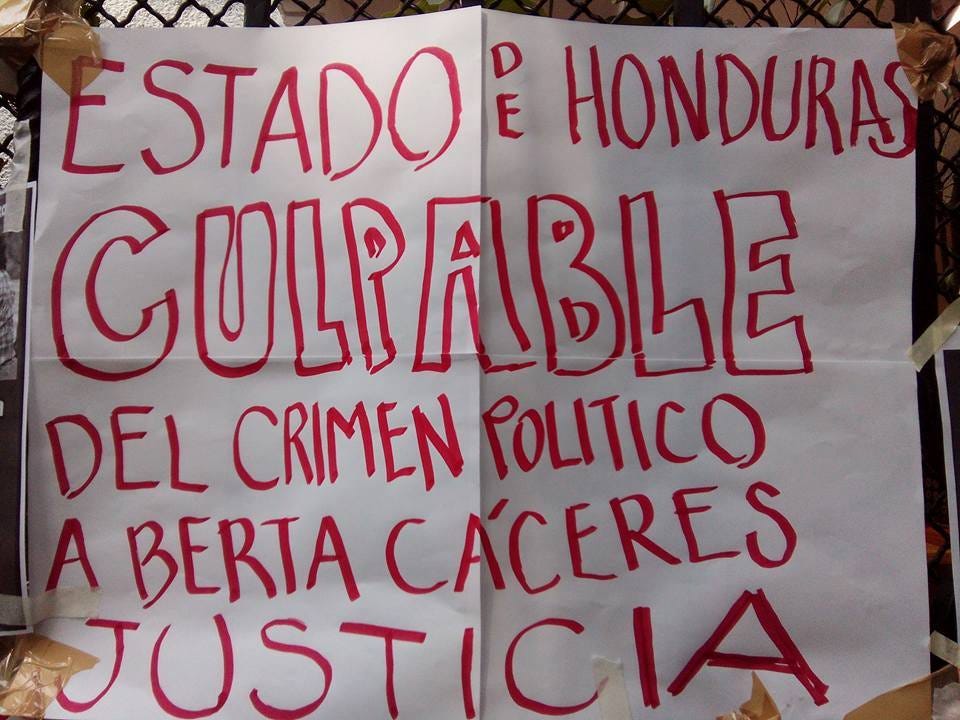 ESTADO DE HONDURAS
CULPABLE
DEL CRIMEN POLITICO
A BERTA CÁCERES
JUSTICIA